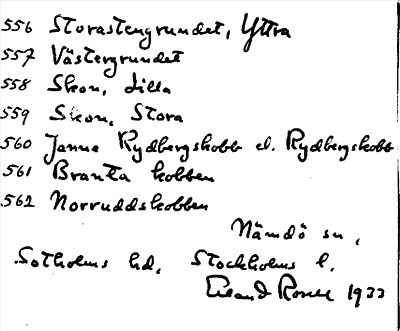 556 Storastengrundet, Yttra
557 Västergrundet
558 Skon, Lilla
559 Skon, Stora
560 Janne Rydbergskobb el. Rydbergskobb
561 Branta kobben
562 Norruddskobben
Nämdö sn,
Sotholms hd, Stockholms l.
Erland Rosell 1933